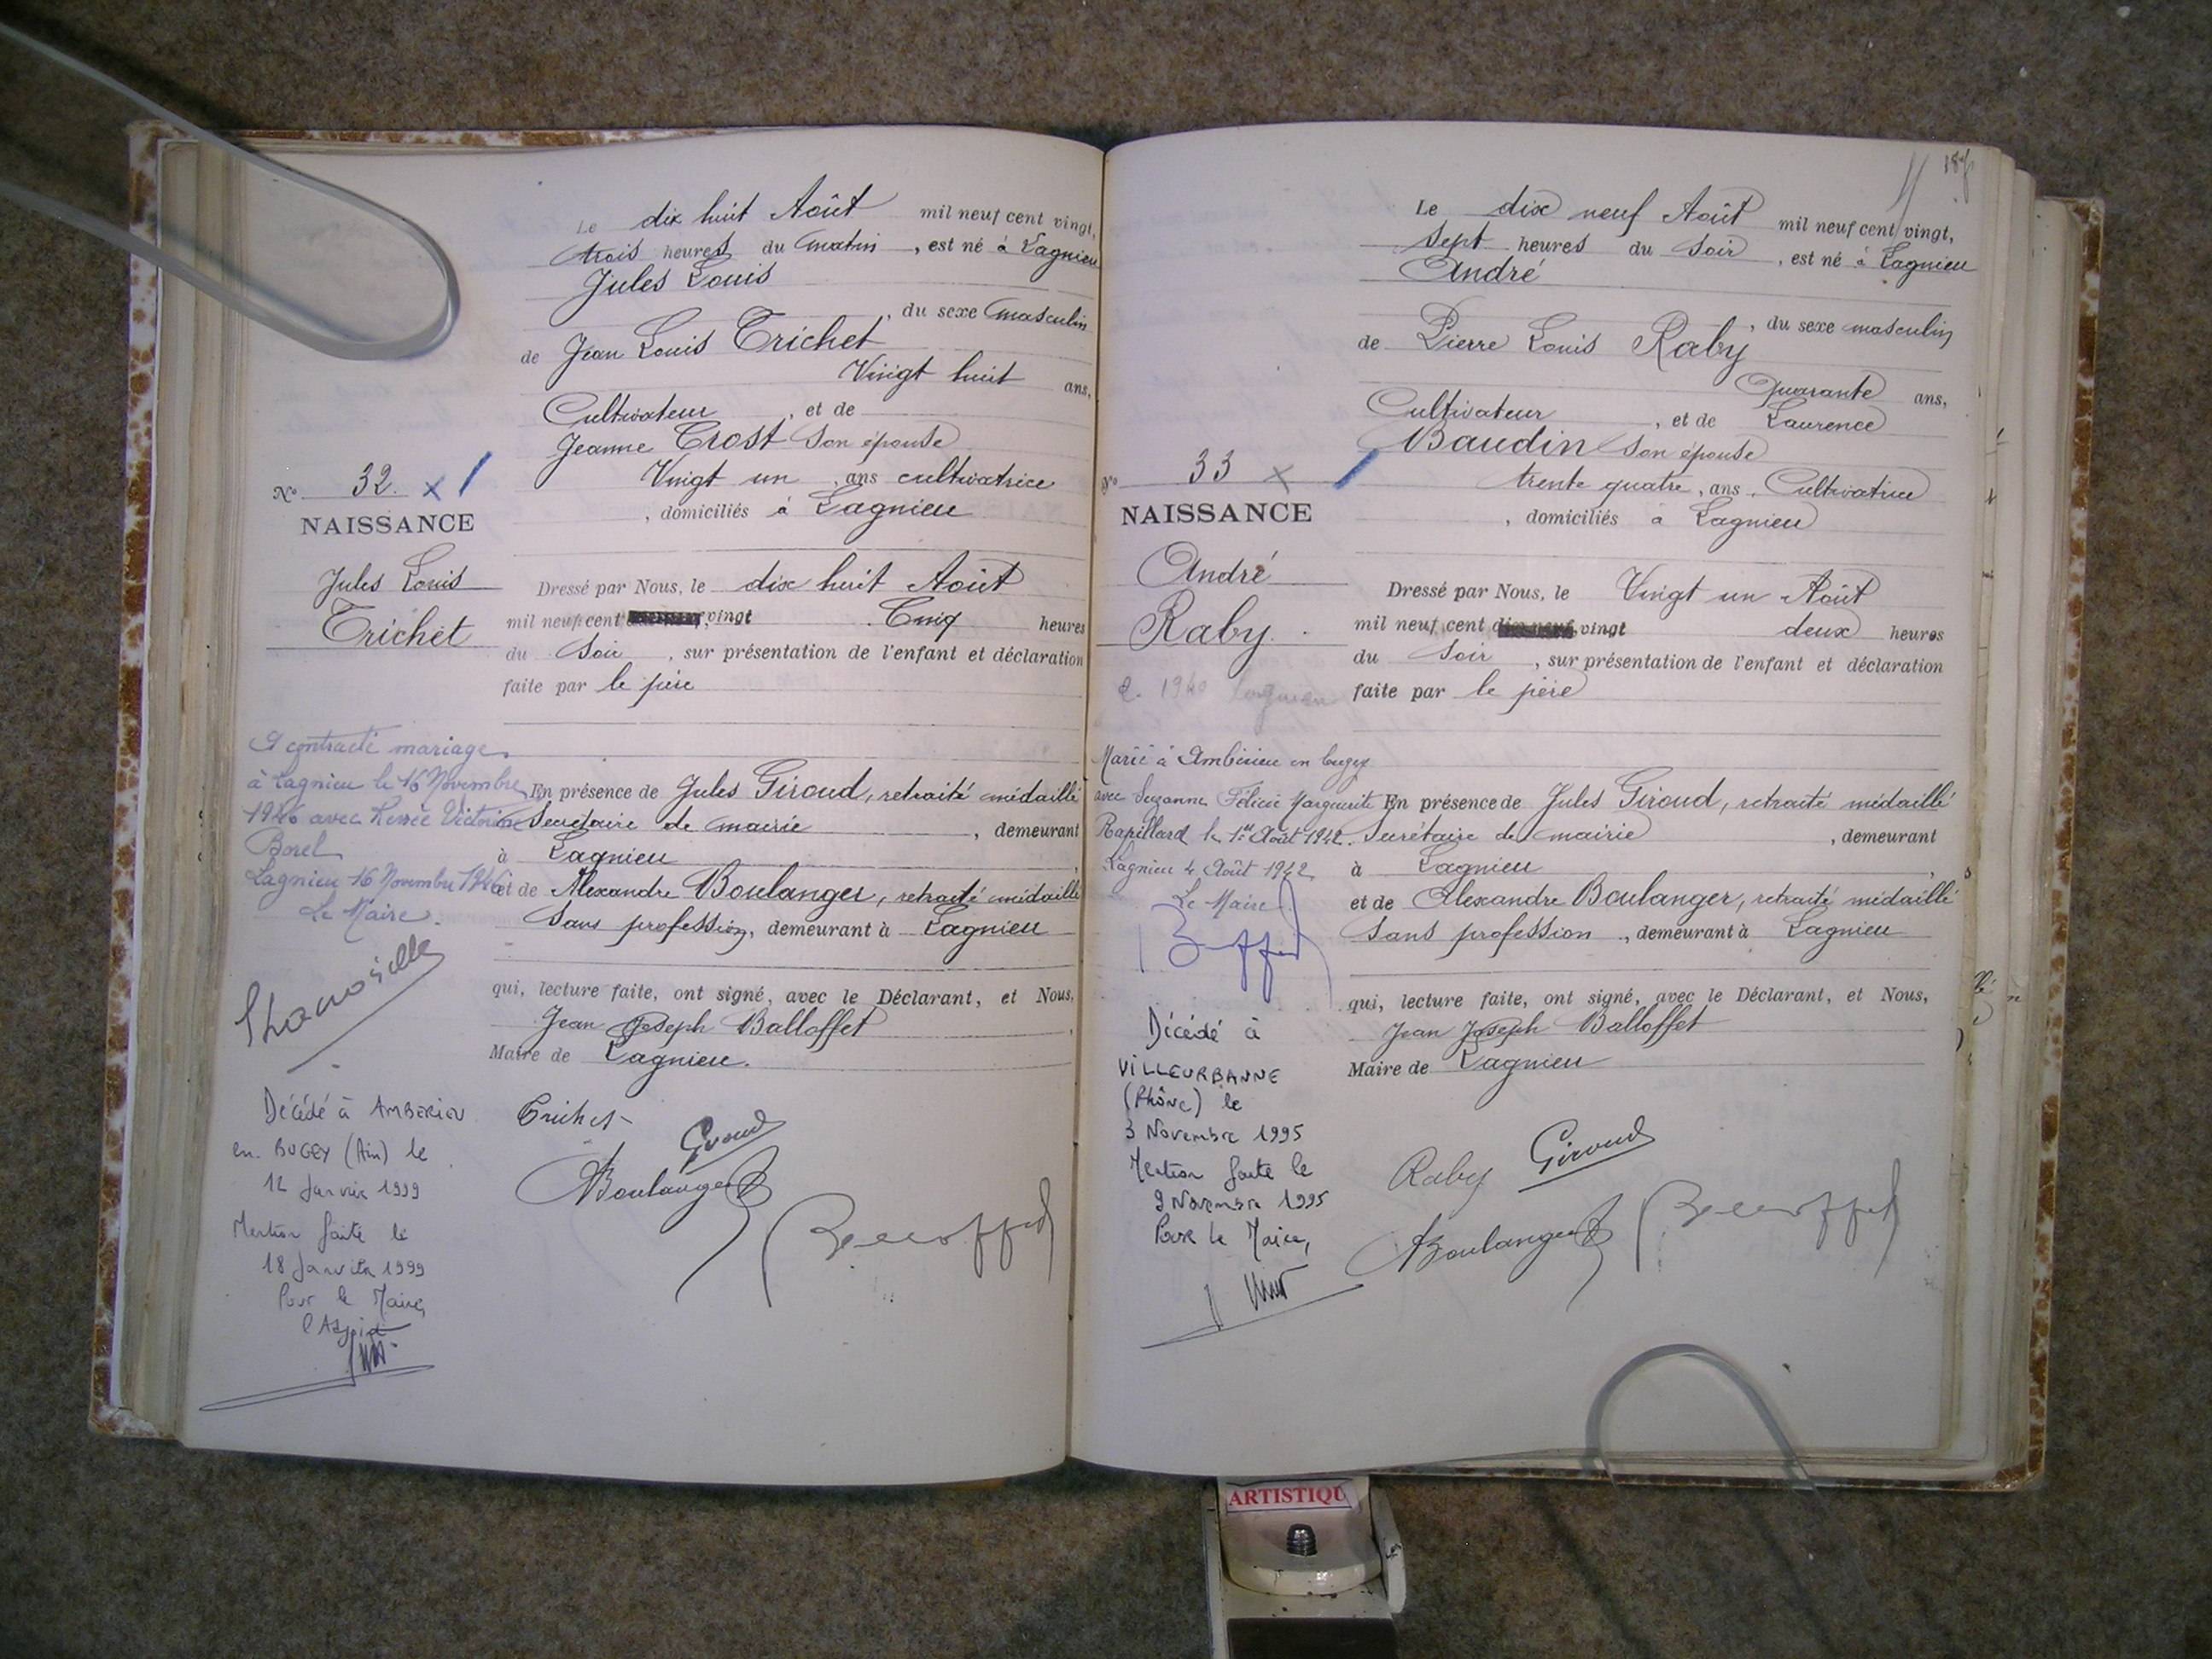 Le dix huit Août mil neuf cent vingt,
trois heures du matin, est né à Lagnieu
Jules Louis
, du sexe masculin
de Jean Louis Trichet
Vingt huit ans,
Cultivateur, et de
Jeanne Trost son épouse
Vingt un, ans cultivatrice
, domiciliés à Lagnieu
No 32. x /
NAISSANCE
Jules Louis
Trichet
Dressé par Nous, le dix huit Août
mil neuf cent vingt Cinq heures
du soir, sur présentation de l'enfant et déclaration
faite par le père
A contracté mariage
à Lagnieu le 16 Novembre
1946 avec Renée Victorine
Borel
Lagnieu 16 Novembre 1946
Le Maire.
En présence de Jules Giroud, retraité médaillé
Secrétaire de mairie, demeurant
à Lagnieu,
et de Alexandre Boulanger, retraité médaillé
Sans profession, demeurant à Lagnieu
qui, lecture faite, ont signé, avec le Déclarant, et Nous,
Jean Joseph Balloffet,
Maire de Lagnieu.
Décédé à AMBERIEU
en BUGEY (Ain) le
12 Janvier 1999
Mention faite le
18 Janvier 1999
Pour le Maire,
l'Adjoint
Trichet
Giroud
Boulanger
Balloffet
187
Le dix neuf Août mil neuf cent vingt,
sept heures du soir, est né à Lagnieu
André
, du sexe masculin
de Pierre Louis Raby
Quarante ans,
Cultivateur, et de Laurence
Baudin son épouse
trente quatre, ans. Cultivatrice
, domiciliés à Lagnieu
No 33 x /
NAISSANCE
André
Raby.
Dressé par Nous, le Vingt un Août
mil neuf cent dix-neuf vingt deux heures
du soir, sur présentation de l'enfant et déclaration
faite par le père
1940 Lagnieu
Marié à Ambérieu en bugey
avec Suzanne Félicie Marguerite
Rapillard le 1er Août 1942.
Lagnieu 4 Août 1942
Le Maire
En présence de Jules Giroud, retraité médaillé
Secrétaire de mairie, demeurant
à Lagnieu,
et de Alexandre Boulanger, retraité médaillé
Sans profession, demeurant à Lagnieu
qui, lecture faite, ont signé, avec le Déclarant, et Nous,
Jean Joseph Balloffet
Maire de Lagnieu
Décédé à
VILLEURBANNE
(Rhône) le
3 Novembre 1995
Mention faite le
9 Novembre 1995
Pour le Maire,
Raby Giroud
Boulanger Balloffet
ARTISTIQU